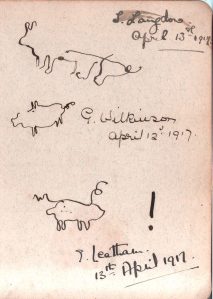 S. Langdon
April 13th
G. Wilkinson
April 12th 1917.
!
E. Leatham.
13th April 1917.